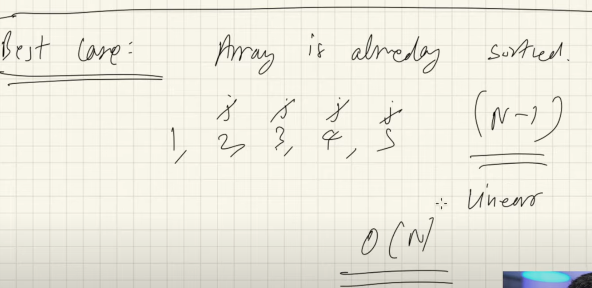 Best Case: Array is already sorted.
j j j j
1, 2, 3, 4, 5 (N-1)
∴ Linear
O(N)